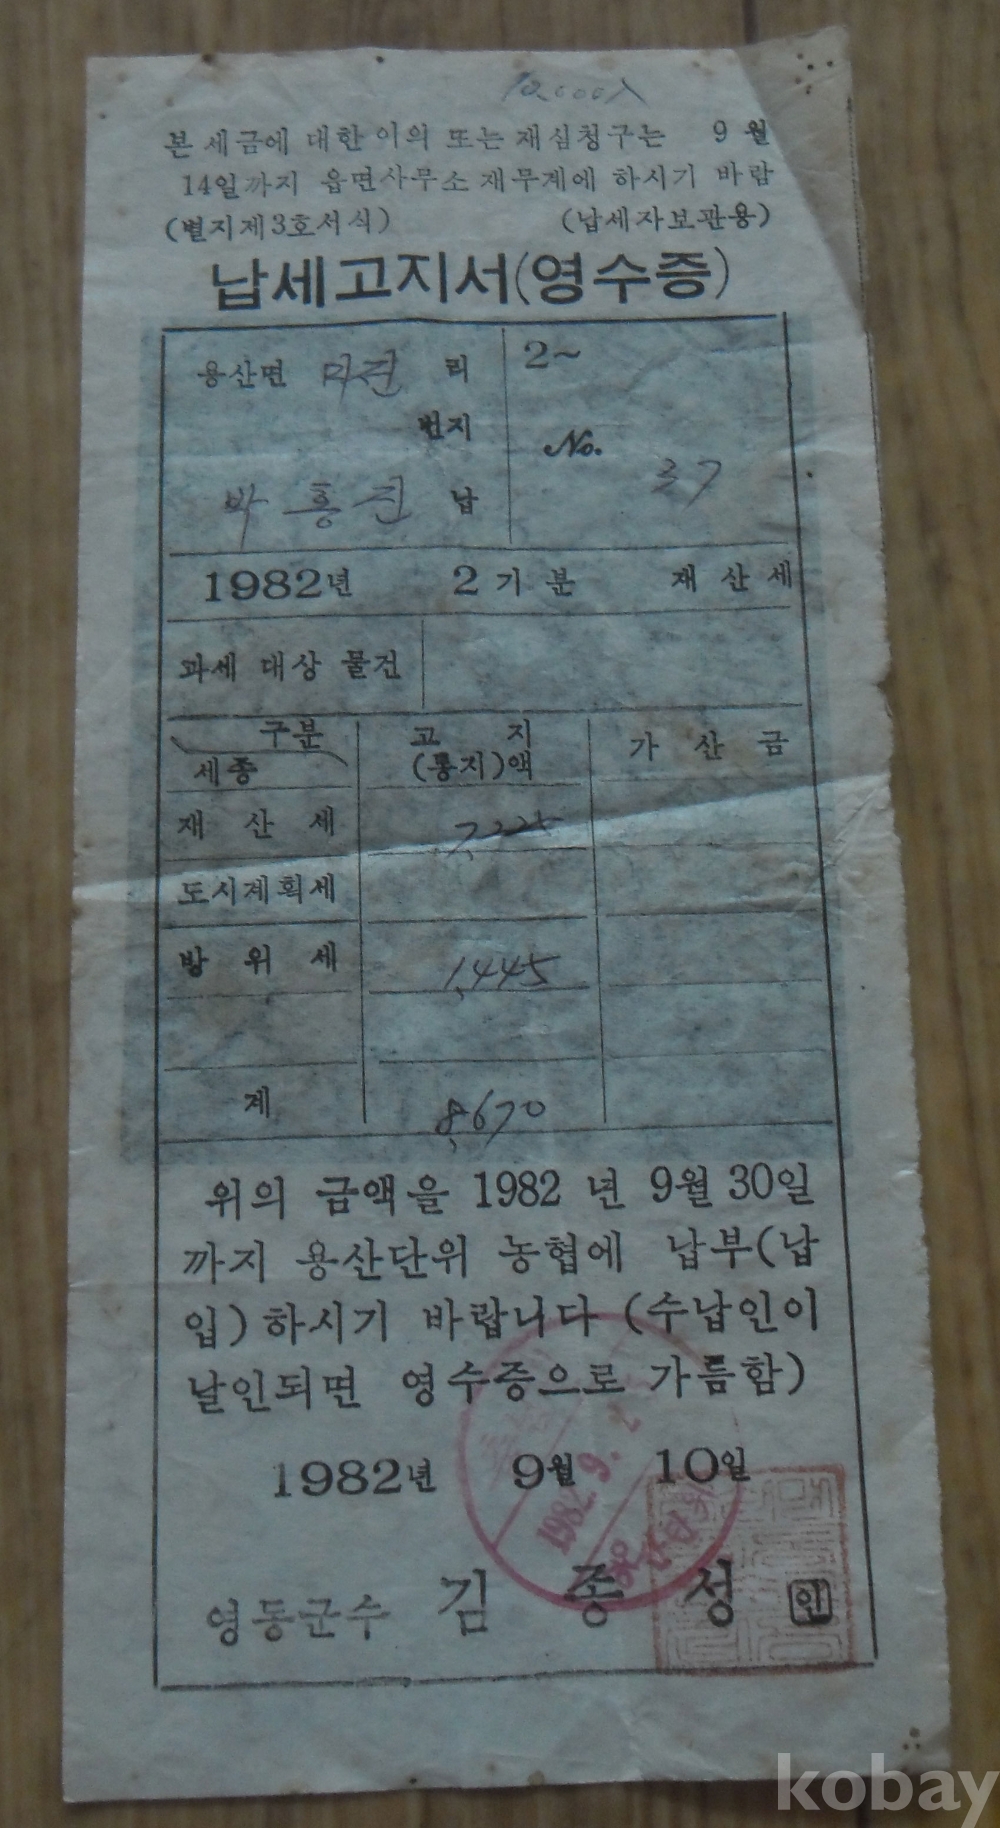 10,000入
본 세금에 대한 이의 또는 재심청구는 9월
14일까지 읍면사무소 재무계에 하시기 바람
(별지제3호서식) (납세자보관용)
납세고지서(영수증)
용산면 미전 리 2~
번지 No. 37
박홍진 납
1982년 2기분 재산세
과세 대상 물건
구분 고지 가산금
세종 (통지)액
재산세 7,225
도시계획세
방위세 1,445
계 8,670
위의 금액을 1982년 9월 30일
까지 용산단위 농협에 납부(납
입)하시기 바랍니다 (수납인이
날인되면 영수증으로 가름함)
1982년 9월 10일
1982. 9. 2
영동군수 김종성 인
kobay